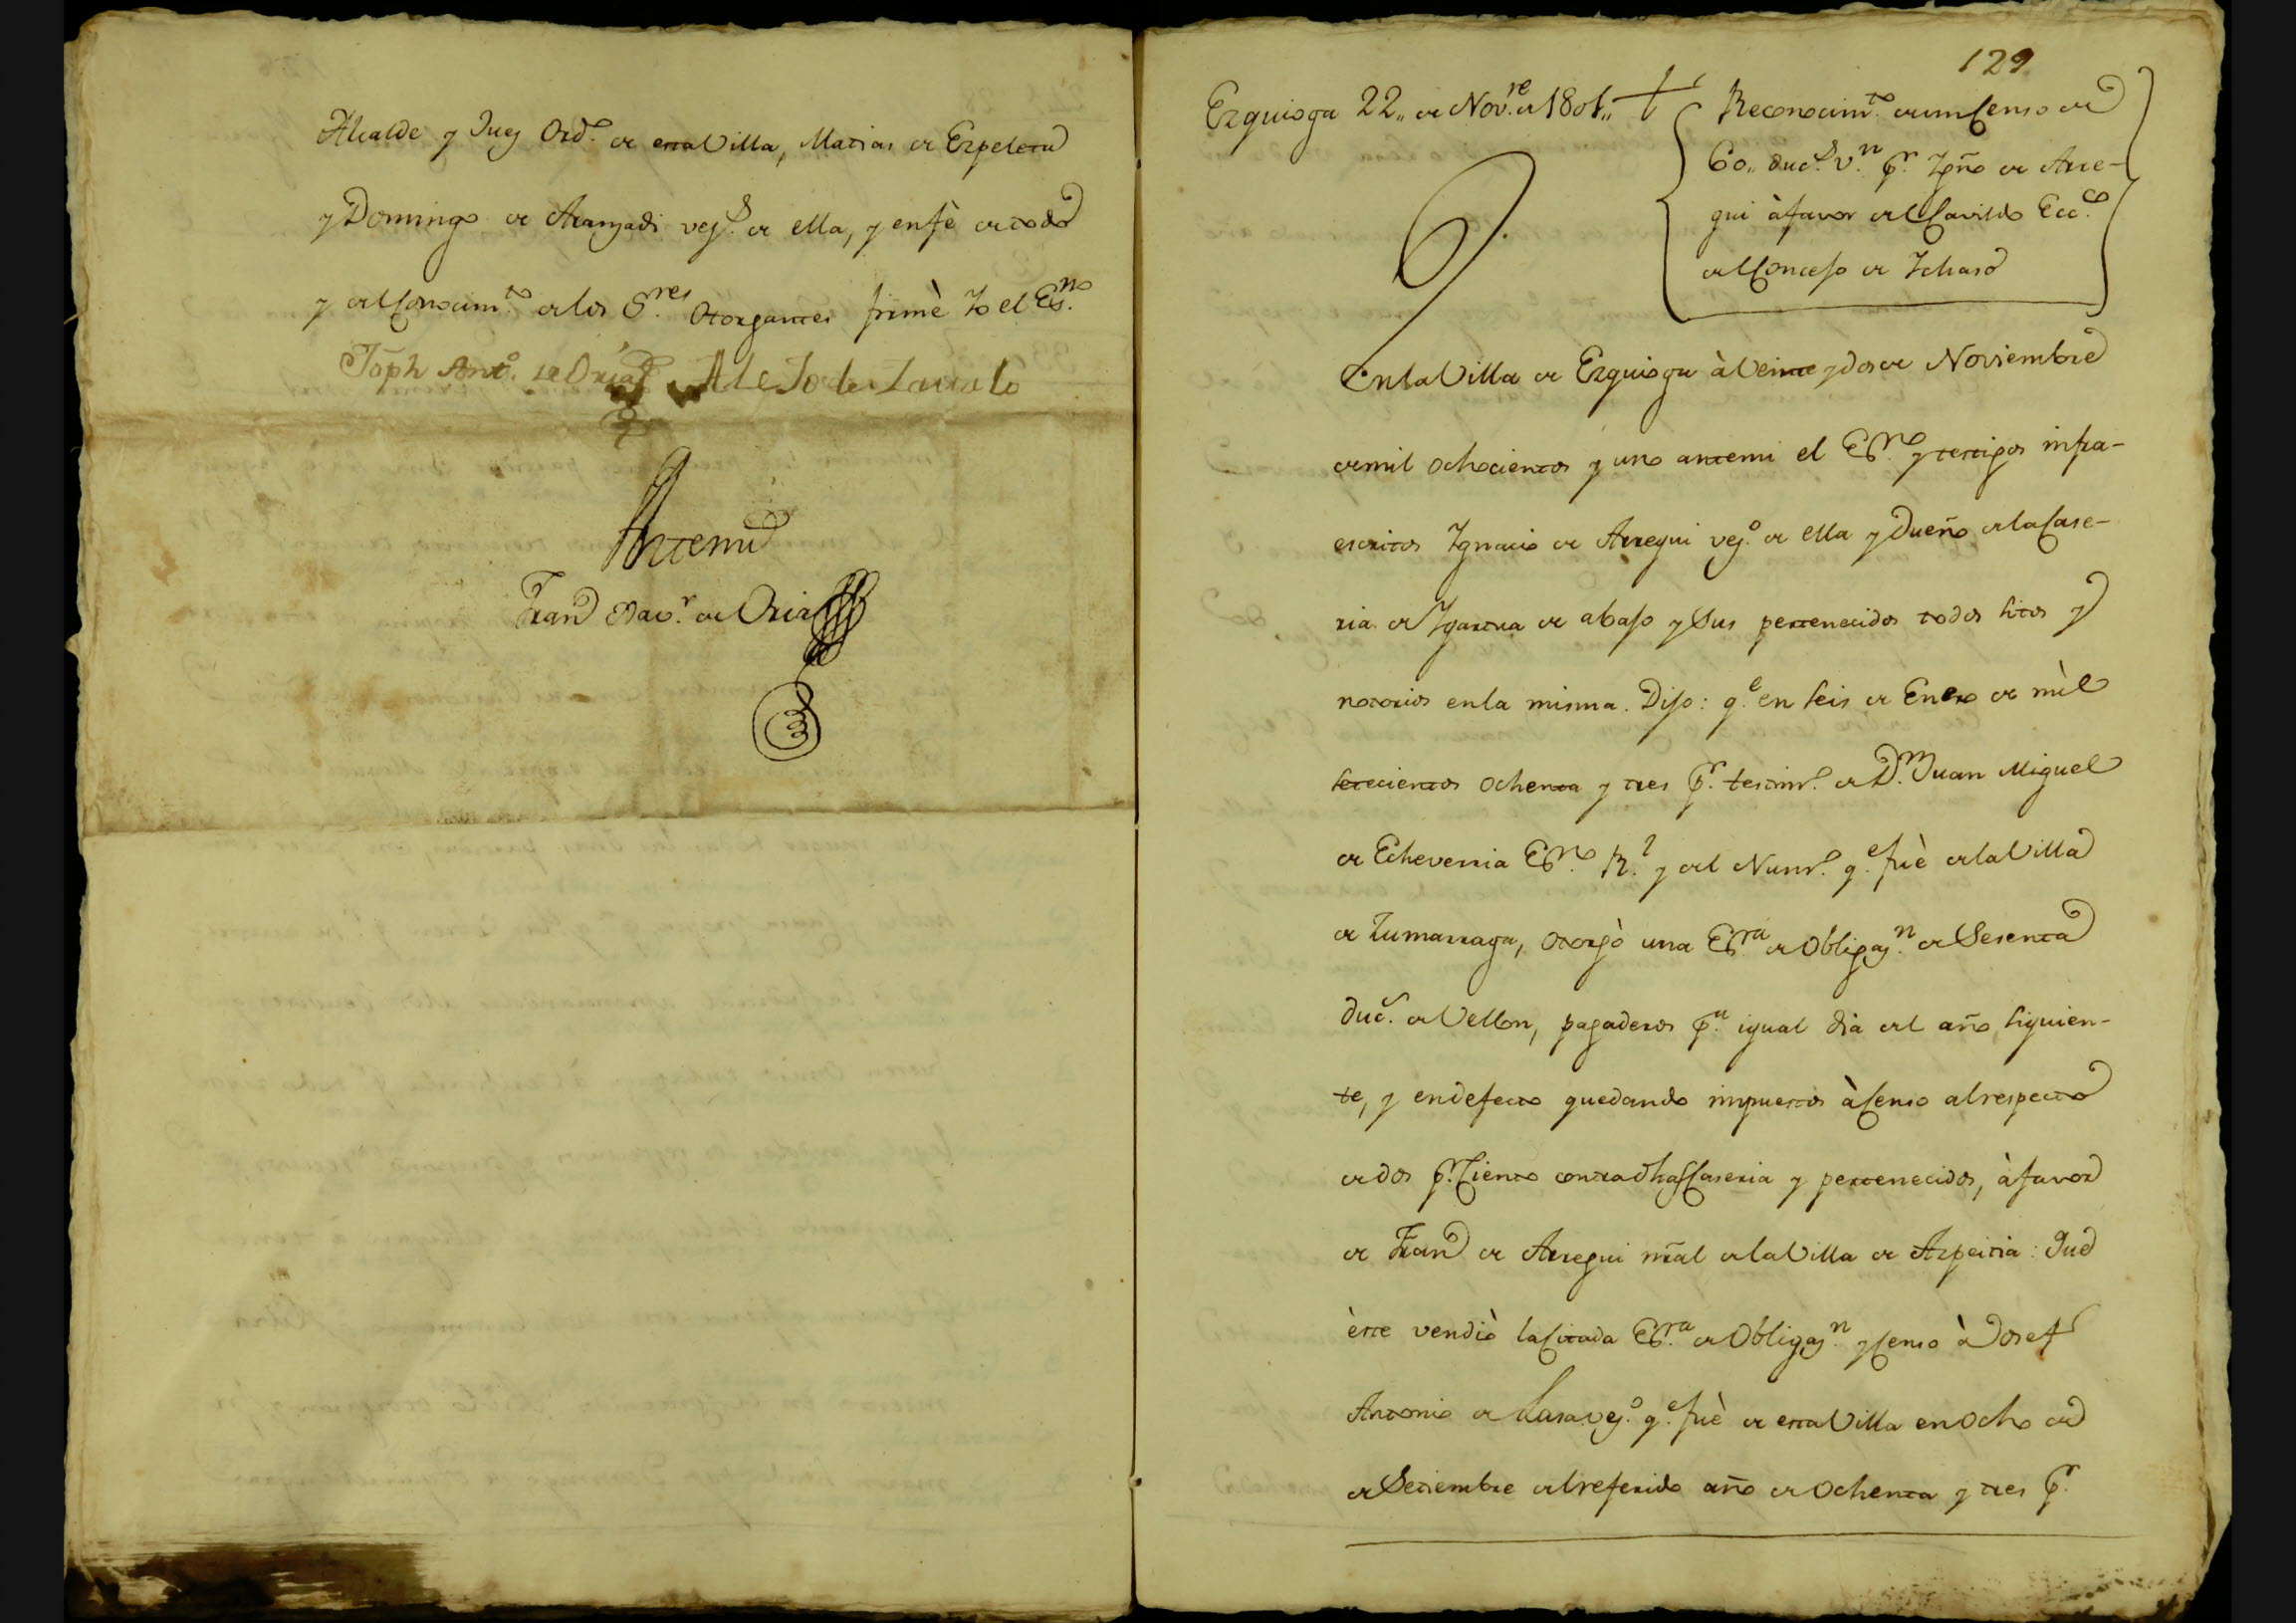 Alcalde y Juez Ord.º de esta Villa, Matias de Ezpeleta
y Domingo de Aranzadi vez.s de ella, y en fè de todo
y del Conocim.to de los S.res Otorgantes firmè Yo el Es.no
Joph Ant.º de Oria Alejo de
Antemi
Fran.co Xav.r de Oria
129
Ezquioga 22,, de Nov.re de 1801,,
Reconocim.to de un Censo de
60,, duc.s v.n p.r Ign.º de Arre-
gui à favor del Cavildo Ecc.co
del Concejo de Ichaso
En la Villa de Ezquioga à Veinte y dos de Noviembre
de mil ochocientos y uno antemi el Es.no y testigos infra-
escritos Ignacio de Arregui vez.º de ella y Dueño de la Case-
ria de Ygartua de abajo y Sus pertenecidos todos sitos y
notorios en la misma. Dijo: q.e en seis de Enero de mìl
setecientos ochenta y tres p.r testim.º de D.n Juan Miguel
de Echeverria Es.no R.l y del Num.º q.e fuè de la Villa
de Zumarraga, otorgò una Es.ra de Obligaz.n de Sesenta
duc.s de Vellon, pagaderos p.a igual dia del año siguien-
te, y en defecto quedando impuestos à Censo al respecto
de dos p.r Ciento contra dha Caseria y pertenecidos, à favor
de Fran.co de Arregui nr̃al de la Villa de Azpeitia: Que
èste vendiò la Citada Es.ra de Obligaz.n y Censo à Josef
Antonio de Lasa vez.º q.e fuè de esta Villa en Ocho de
de Setiembre del referido año de Ochenta y tres p.r